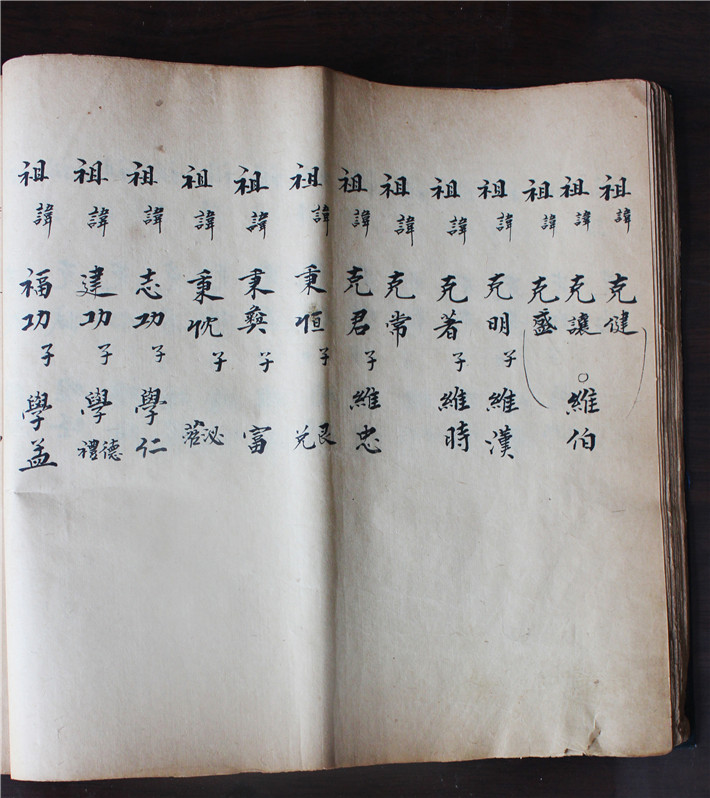 祖諱克健
祖諱克讓○維伯
祖諱克盛
祖諱克明子維漢
祖諱克著子維時
祖諱克常
祖諱克君子維忠
祖諱秉恒子艮兌
祖諱秉彝子富
祖諱秉忱子泌
祖諱志功子學仁
祖諱建功子學德禮
祖諱福功子學孟